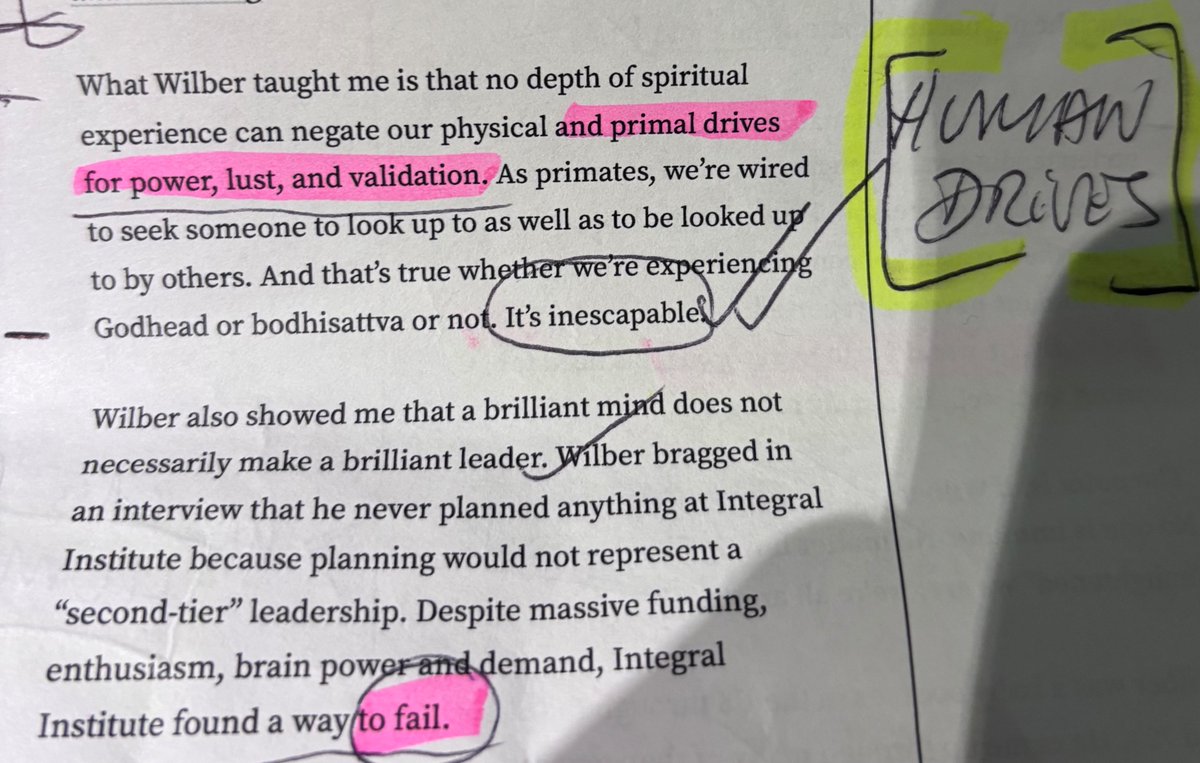 What Wilber taught me is that no depth of spiritual
experience can negate our physical and primal drives
for power, lust, and validation. As primates, we’re wired
to seek someone to look up to as well as to be looked up
to by others. And that’s true whether we’re experiencing
Godhead or bodhisattva or not. It’s inescapable.
Wilber also showed me that a brilliant mind does not
necessarily make a brilliant leader. Wilber bragged in
an interview that he never planned anything at Integral
Institute because planning would not represent a
“second-tier” leadership. Despite massive funding,
enthusiasm, brain power and demand, Integral
Institute found a way to fail.
HUMAN
DRIVES